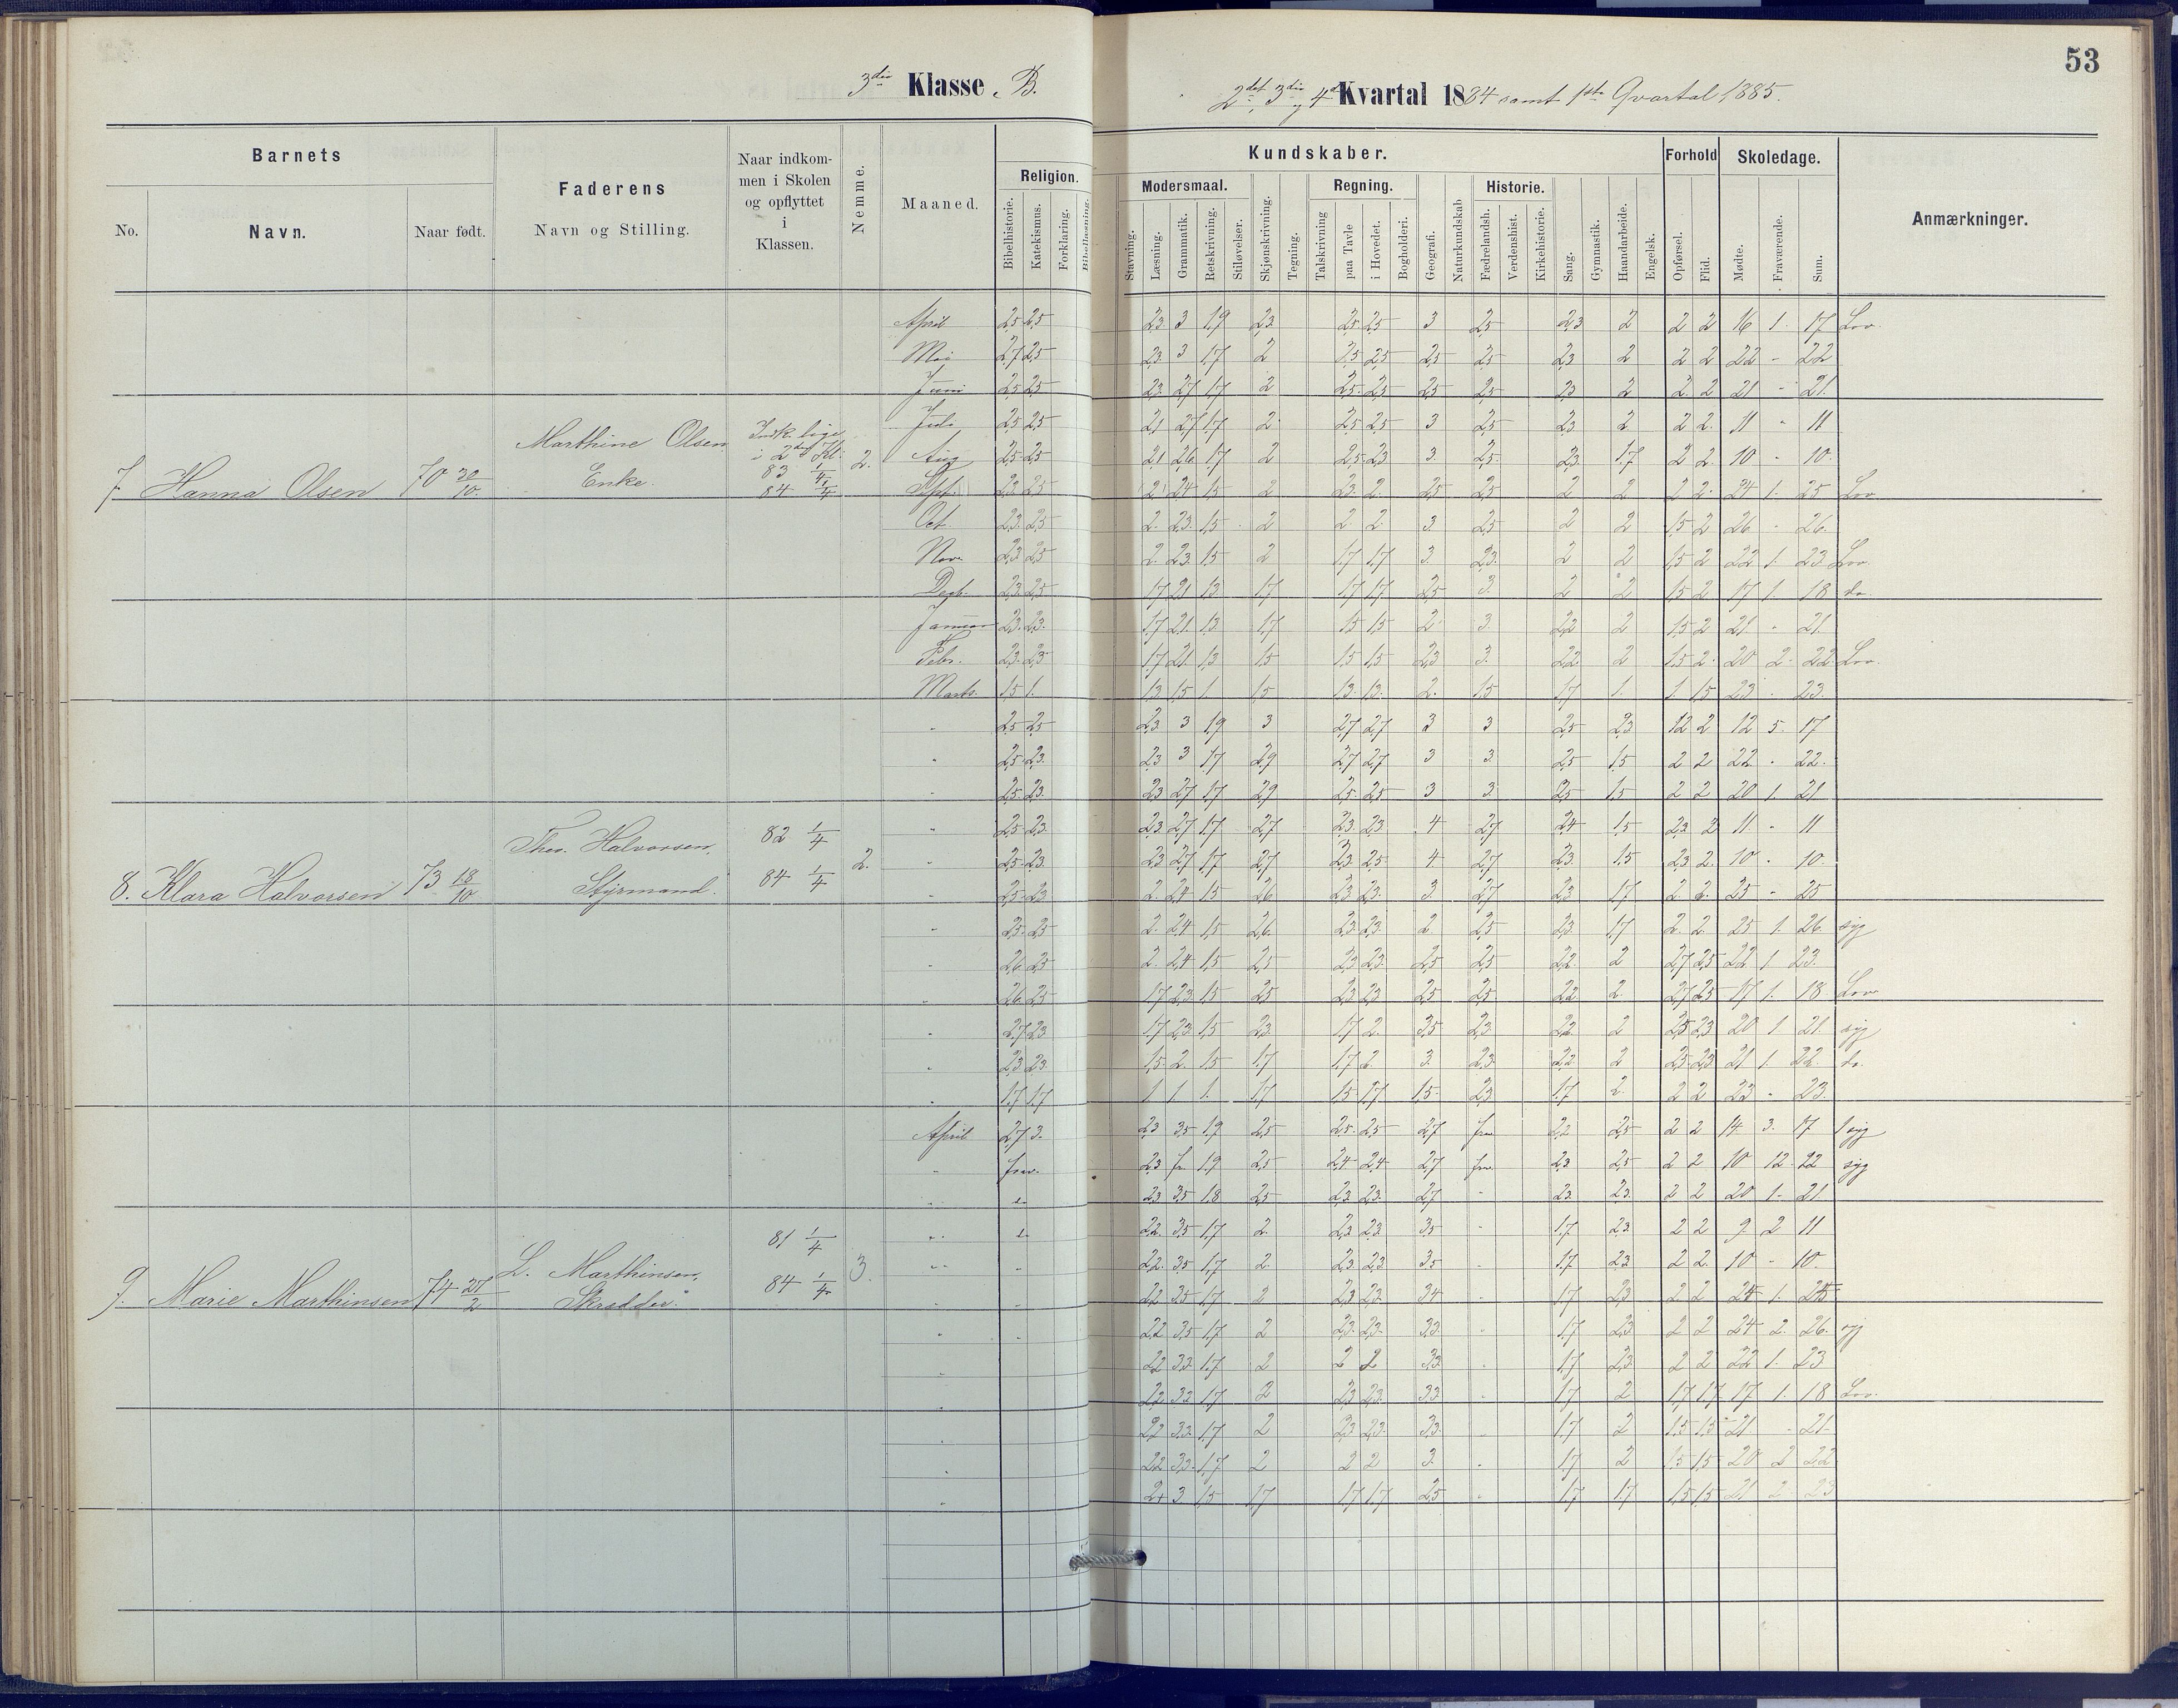 53
3die Klasse B.
2det, 3die og 4de Kvartal 1884 samt 1ste Qvartal 1885.
Barnets
No. Navn. Naar født.
Faderens
Navn og Stilling.
Naar indkom-
men i Skolen
og opflyttet
i
Klassen.
Nemme.
Maaned.
Religion.
Bibelhistorie. Katekismus. Forklaring. Bibellæsning.
Kundskaber.
Modersmaal.
Stavning. Læsning. Grammatik. Retskrivning. Stiløvelser.
Skjønskrivning. Tegning.
Regning.
Talskrivning paa Tavle i Hovedet. Bogholderi.
Geografi. Naturkundskab
Historie.
Fædrelandsh. Verdenshist. Kirkehistorie.
Sang. Gymnastik. Haandarbeide. Engelsk.
Forhold
Opførsel. Flid.
Skoledage.
Mødte. Fraværende. Sum.
Anmærkninger.
April 2,5 2,5 2,3 3 1,9 2,3 2,5 2,5 3 2,5 2,3 2 2 2 16 1 17 Lov.
Mai 2,7 2,5 2,3 3 1,7 2 2,5 2,5 2,5 2,5 2,3 2 2 2 22 - 22
Juni 2,5 2,5 2,3 2,7 1,7 2 2,5 2,5 2,5 2,5 2,3 2 2 2 21 - 21
Juli 2,5 2,5 2,1 2,7 1,7 2 2,5 2,5 3 2,5 2,3 2 2 2 11 - 11
Aug 2,5 2,5 2,1 2,6 1,7 2 2,5 2,3 3 2,5 2,3 1,7 2 2 10 - 10
7. Hanna Olsen 70 30/10 Marthine Olsen, Enke. Indk. lige i 2den Kl. 83 1/4 84 1/4 2.
Spt. 2,3 2,5 2 2,4 1,5 2 2,3 2 2,5 2,5 2 2 2 2 24 1 25 Lov
Oct. 2,3 2,5 2 2,3 1,5 2 2 2 3 2,5 2 2 1,5 2 26 - 26
Nov. 2,3 2,5 2 2,3 1,5 2 1,7 1,7 3 2,3 2 2 1,5 2 22 1 23 Lov
Decb. 2,3 2,5 1,7 2,1 1,3 1,7 1,7 1,7 2,5 3 2 2 1,5 2 17 1 18 do.
Januar 2,3 2,3 1,7 2,1 1,3 1,7 1,5 1,5 2 3 2,2 2 1,5 2 21 - 21
Febr. 2,3 2,3 1,7 2,1 1,3 1,5 1,5 1,5 2,3 3 2,2 2 1,5 2 20 2 22 Lov.
Marts. 1,5 1 1,3 1,5 1 1,5 1,3 1,3 2 1,5 1,7 1 1 1,5 23 - 23
2,5 2,5 2,3 3 1,9 3 2,7 2,7 3 3 2,5 2,3 12 2 12 5 17
2,5 2,3 2,3 3 1,7 2,9 2,7 2,7 3 3 2,5 1,5 2 2 22 - 22
2,5 2,3 2,3 2,7 1,7 2,9 2,5 2,5 3 3 2,5 1,5 2 2 20 1 21
2,5 2,3 2,3 2,7 1,7 2,7 2,3 2,3 4 2,7 2,4 1,5 2,3 2 11 - 11
2,5 2,3 2,3 2,7 1,7 2,7 2,3 2,5 4 2,7 2,3 1,5 2,3 2 10 - 10
8. Klara Halvorsen 73 18/10 Thor. Halvorsen, Styrmand. 82 1/4 84 1/4 2.
2,5 2,3 2 2,4 1,5 2,6 2,3 2,3 3 2,7 2,3 1,7 2 2 25 - 25
2,5 2,5 2 2,4 1,5 2,6 2,3 2,3 2 2,5 2,3 1,7 2 2 25 1 26 syg
2,6 2,5 2 2,4 1,5 2,5 2,3 2,3 2,5 2,5 2,2 2 2,7 2,5 22 1 23
2,6 2,5 1,7 2,3 1,5 2,5 2,3 2,3 2,5 2,5 2,2 2 2,7 2,5 17 1 18 Lov
2,7 2,3 1,7 2,3 1,5 2,3 1,7 2 3,5 2,3 2,2 2 2,5 2,3 20 1 21 syg
2,3 2,3 1,5 2 1,5 1,7 1,7 2 3 2,3 2,2 2 2,5 2,3 21 1 22 do.
1,7 1,7 1 1 1 1,7 1,5 1,7 1,5 2,3 1,7 2 2 2 23 - 23
April 2,7 3 2,3 3,5 1,9 2,5 2,5 2,5 2,7 frv 2,2 2,5 2 2 14 3 17 1 syg
frv. 2,3 fr 1,9 2,5 2,4 2,4 2,7 frv. 2,3 2,5 2 2 10 12 22 syg
2,3 3,5 1,8 2,5 2,3 2,3 2,7 - 2,3 2,3 2 2 20 1 21
2,2 3,5 1,7 2 2,3 2,3 3,5 - 1,7 2,3 2 2 9 2 11
2,2 3,5 1,7 2 2,3 2,3 3,5 - 1,7 2,3 2 2 10 - 10
9. Marie Marthinsen 74 27/2 L. Marthinsen, Skrædder. 81 1/4 84 1/4 3.
2,2 3,5 1,7 2 2,3 2,3 3,4 - 1,7 2,3 2 2 24 1 25
2,2 3,5 1,7 2 2,3 2,3 3,3 - 1,7 2,3 2 2 24 2 26 syg
2,2 3,3 1,7 2 2 2 3,3 - 1,7 2,3 2 2 22 1 23
2,2 3,3 1,7 2 2,3 2,3 3,3 - 1,7 2 1,7 1,7 17 1 18 Lov.
2,2 3,3 1,7 2 2,3 2,3 3,3 - 1,7 2 1,5 1,5 21 - 21
2,2 3,3 1,7 2 2 2 3 - 1,7 2 1,5 1,5 20 2 22
2+ 3 1,5 1,7 1,7 1,7 2,5 - 1,7 1,7 1,5 1,5 21 2 23